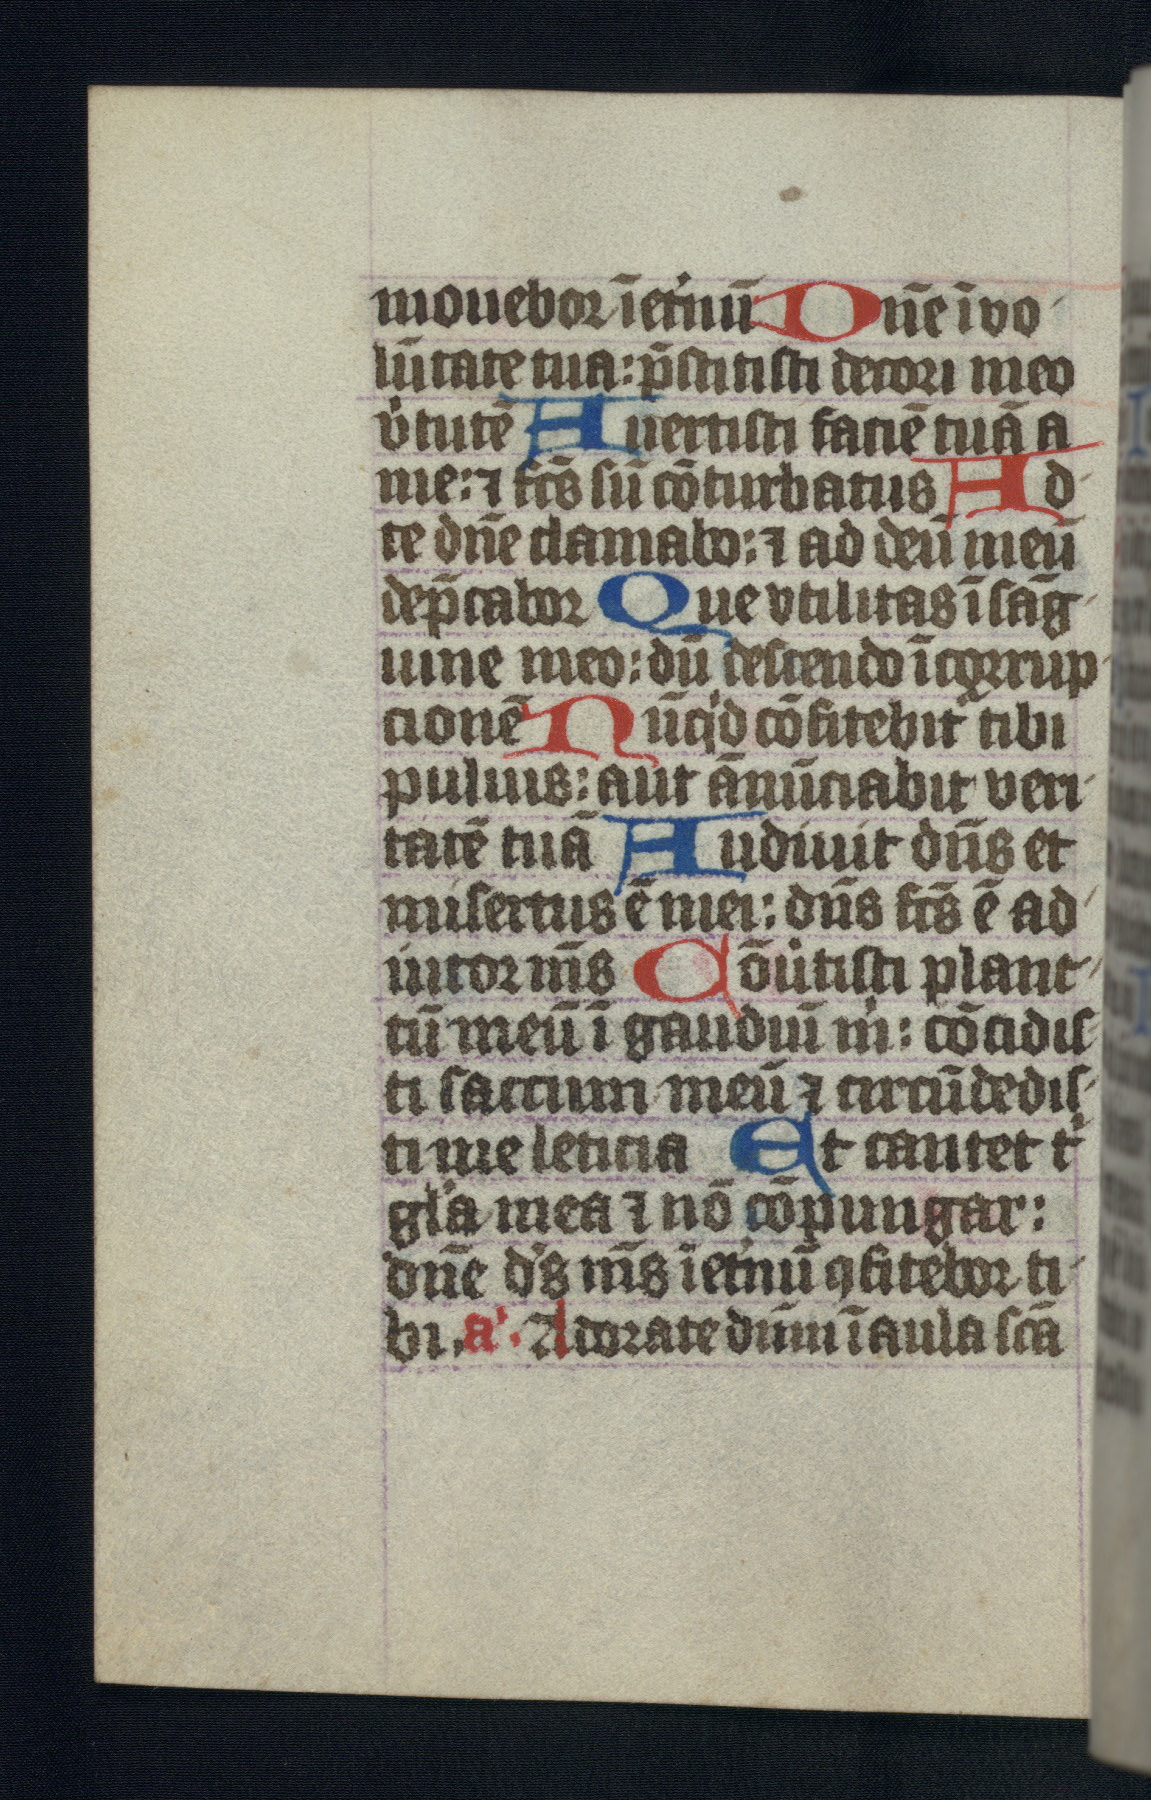 mouebor ī et'nū Dn̄e ī vo
lūtate tua: p̄stitisti decori meo
v'tutē Auertisti faciē tuā a
me: ⁊ fc̄s sū cōturbatus Ad
te dn̄e clamabo: ⁊ ad deū meū
dep̄cabor Que vtilitas ī sāg
uine meo: dū descendo ī corrup
cionē Nūq'd cōfitebit' tibi
puluis: aut ānūciabit veri
tatē tuā Audiuit dn̄s et
misertus ē mei: dn̄s fc̄s ē ad
iutor m̄s Cōu'tisti planc
tū meū ī gaudiū m': cōcidis
ti saccum meū ⁊ circūdedis
ti me leticia Et cantet t'
gl'a mea ⁊ nō cōpungar:
dn̄e d's m̄s ī et'nū ꝯfitebor ti
bi. a'. Adorate dn̄m ī aula sc̄a